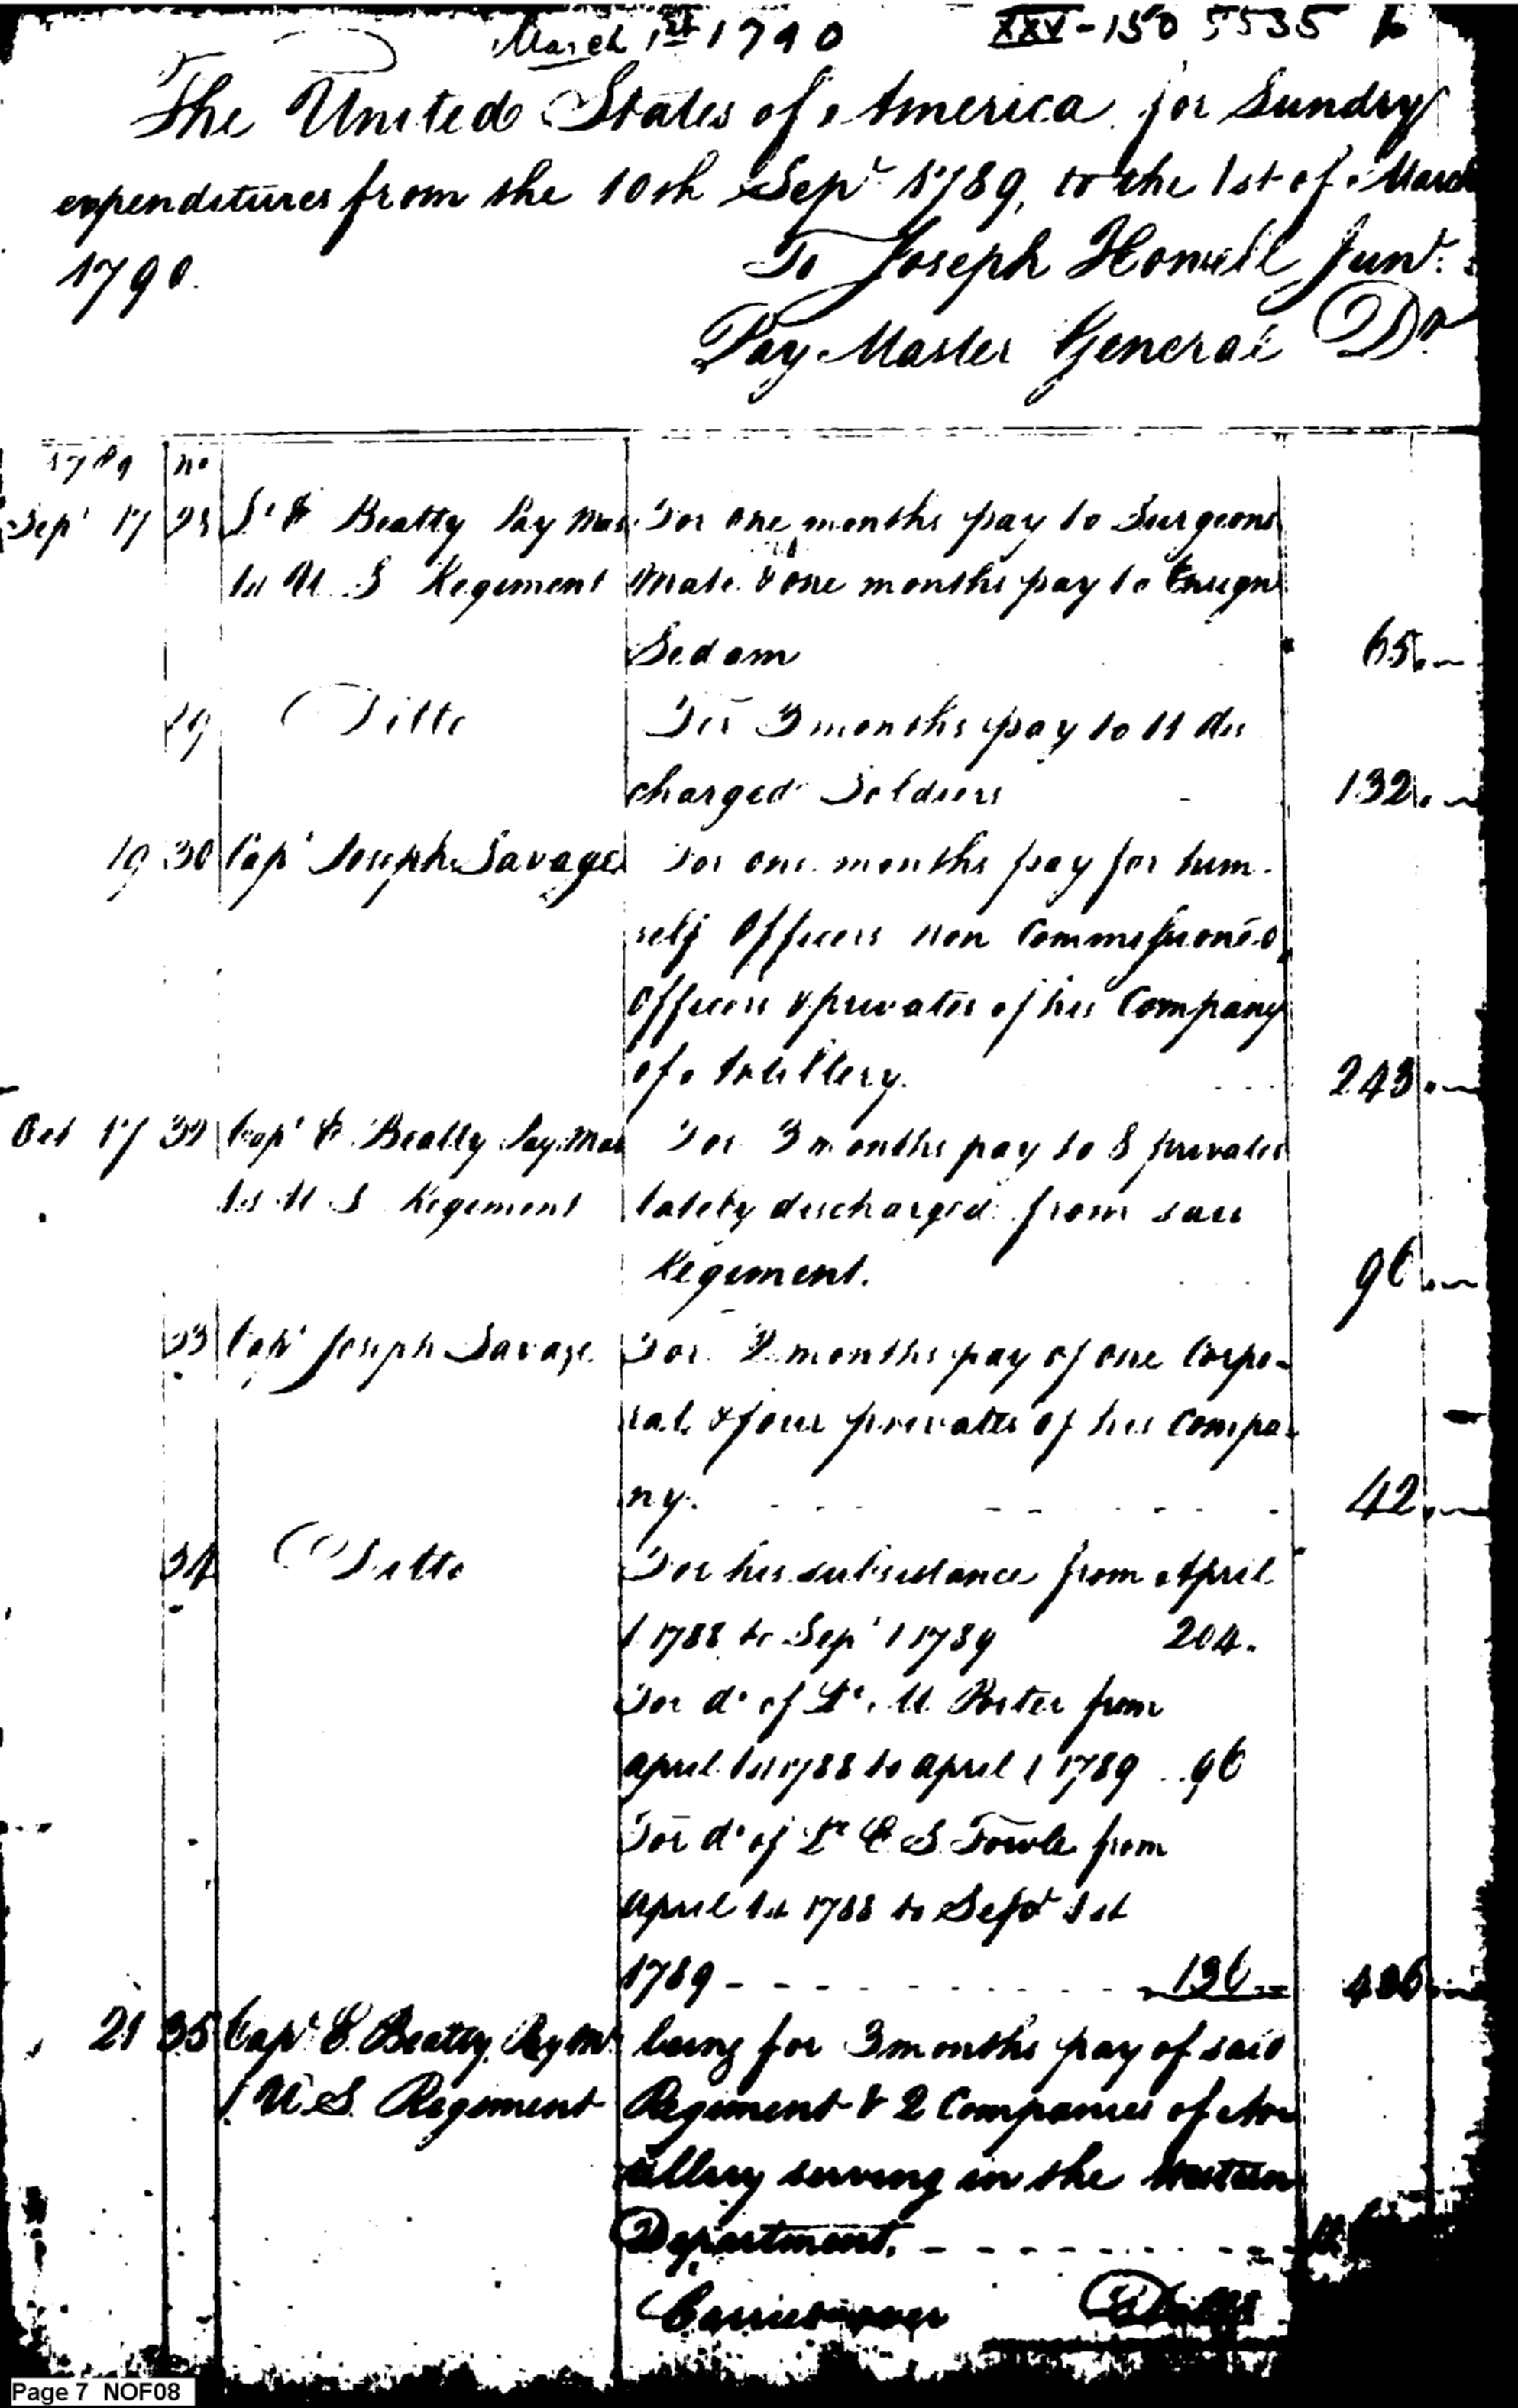 March 1st 1790 XXV-150 5535 b
The United States of America for Sundry
expenditures from the 10th Sepr 1789, to the 1st of March
1790.
To Joseph Howell Junr.
Pay Master General Dr
1789 no
Sepr 17 Lt E Beatty Pay Mas. For one months pay to Surgeons
1st U S Regiment Mate & one months pay to Ensign
Sedam 65.
Ditto For 3 months pay to 11 dis
charged Soldiers - 132.
19 30 Capt Joseph Savage For one months pay for him-
self Officers non Commissioned
Officers & privates of his Company
of Artillery. 243.
Oct 17 32 Capt E. Beatty Pay Mas For 3 months pay to 8 privates
1st U S Regiment lately discharged from said
Regiment. 96
33 Capt Joseph Savage For 2 months pay of one Corpo-
ral & four privates of his Compa-
ny. 42.
34 Ditto For his subsistance from April
1 1788 to Sepr 1 1789 204.
For do of Lt. M Porter from
april 1st 1788 to april 1 1789 96
For do of Lt E S Fowle from
april 1st 1788 to Sepr 1st
1789 - - - - 136 436
21 35 Capt E. Beatty Pay Mr being for 3 months pay of said
1 U.S. Regiment Regiment & 2 Companies of Ar
tillery serving in the Western
Department. - - - -
Carried over Dolls
Page 7 NOF08